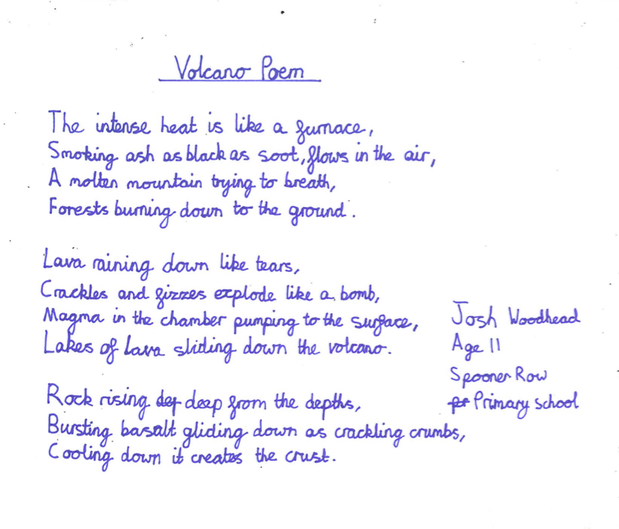 Volcano Poem
The intense heat is like a furnace,
Smoking ash as black as soot, flows in the air,
A molten mountain trying to breath,
Forests burning down to the ground.
Lava raining down like tears,
Crackles and fizzes explode like a bomb,
Magma in the chamber pumping to the surface,
Lakes of Lava sliding down the volcano.
Rock rising deep from the depths,
Bursting basalt gliding down as crackling crumbs,
Cooling down it creates the crust.
Josh Woodhead
Age 11
Spooner Row
Primary School